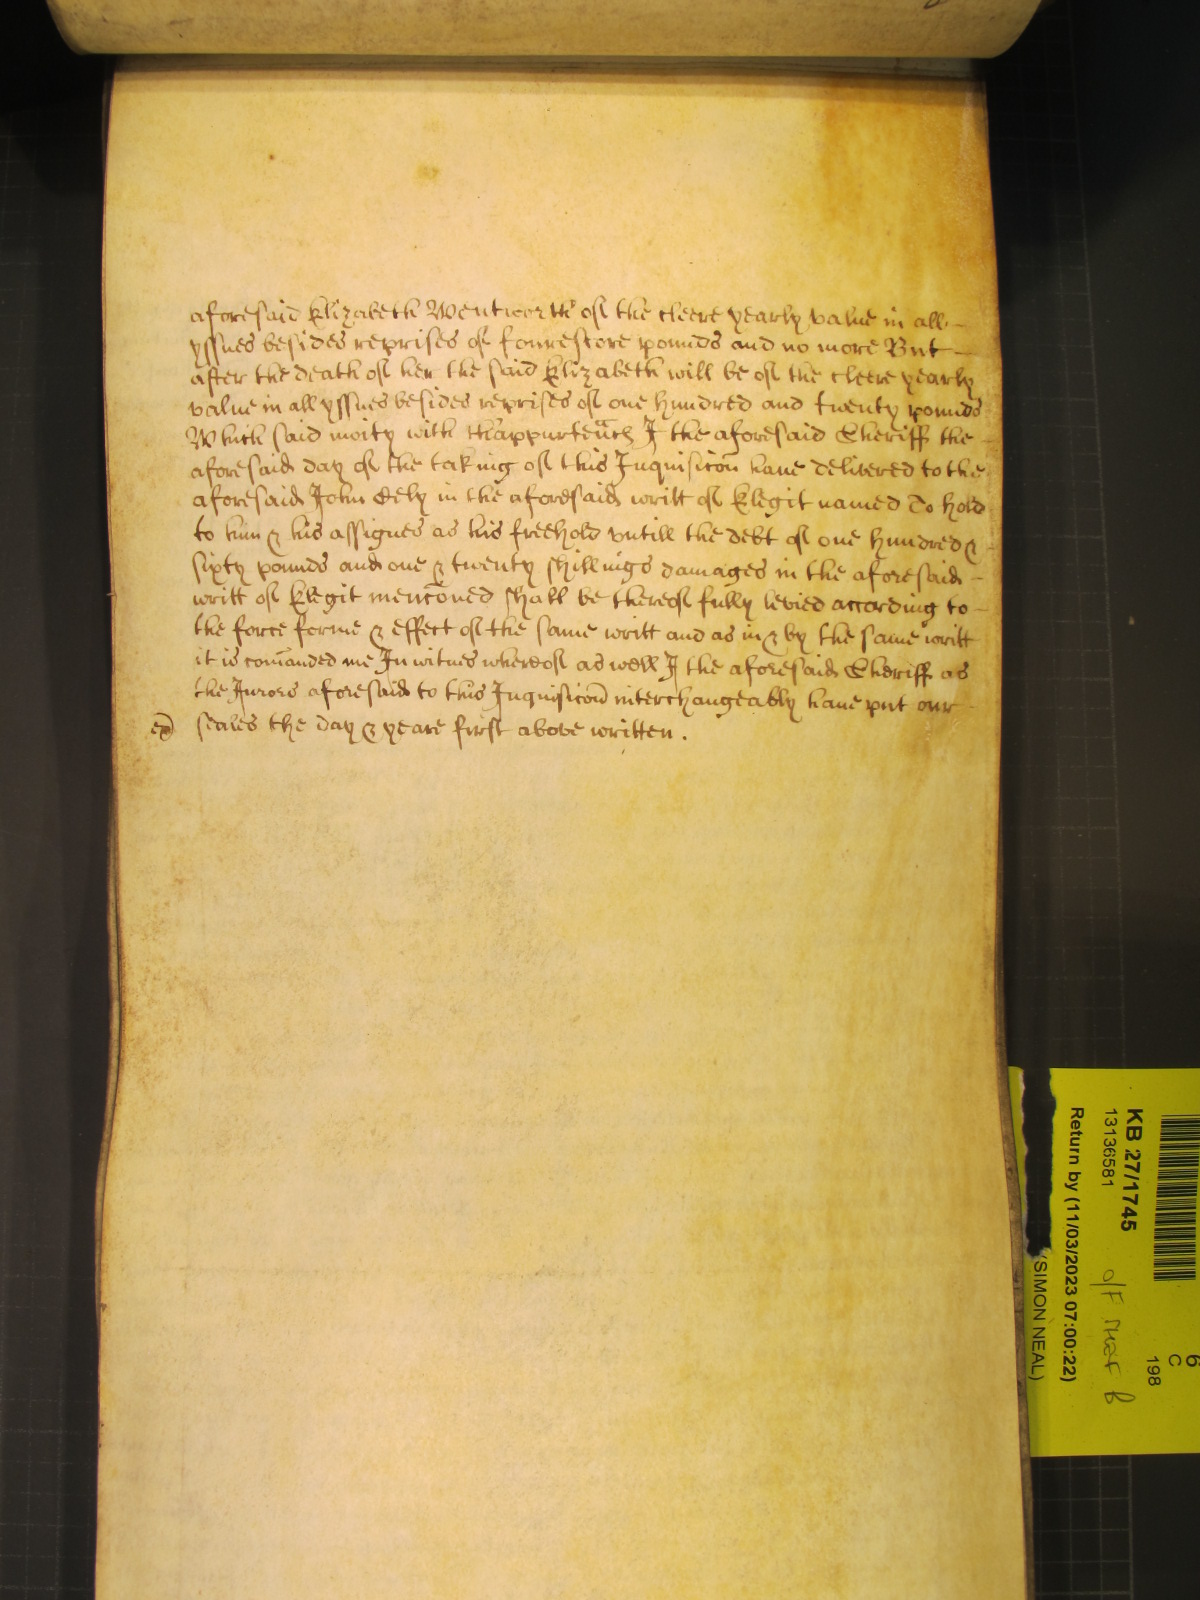 aforesaid Elizabeth Wentworth of the cleere yearly value in all -
yssues besides reprises of fourescore pounds and no more But -
after the death of her the said Elizabeth will be of the cleere yearly
value in all yssues besides reprises of one hundred and twenty pounds
Which said moity with th'appurten̄ncs I the aforesaid Sheriff the -
aforesaid day of the taking of this Inquisicōn haue delivered to the
aforesaid John Gely in the aforesaid writt of Elegit named To hold
to him & his assignes as his freehold vntill the debt of one hundred &
sixty pounds and one & twenty shillings damages in the aforesaid -
writt of Elegit mencōned shall be thereof fully levied according to -
the force forme & effect of the same writt and as in & by the same writt
it is com̄anded me In witnes whereof as well I the aforesaid Sheriff as
the Jurors aforesaid to this Inquisicōn interchangeably haue put our -
ex̄ seales the day & yeare first above written .
KB 27/1745
13136581
Return by (11/03/2023 07:00:22)
(SIMON NEAL)
6
C
198